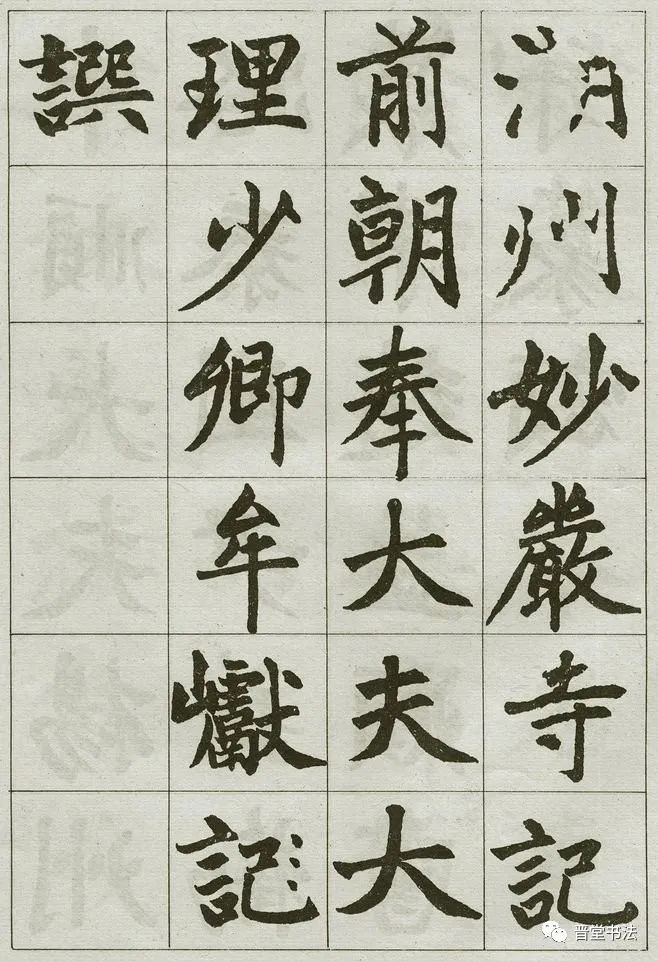 湖州妙嚴寺記
前朝奉大夫大
理少卿牟巘記
譔
晋堂书法